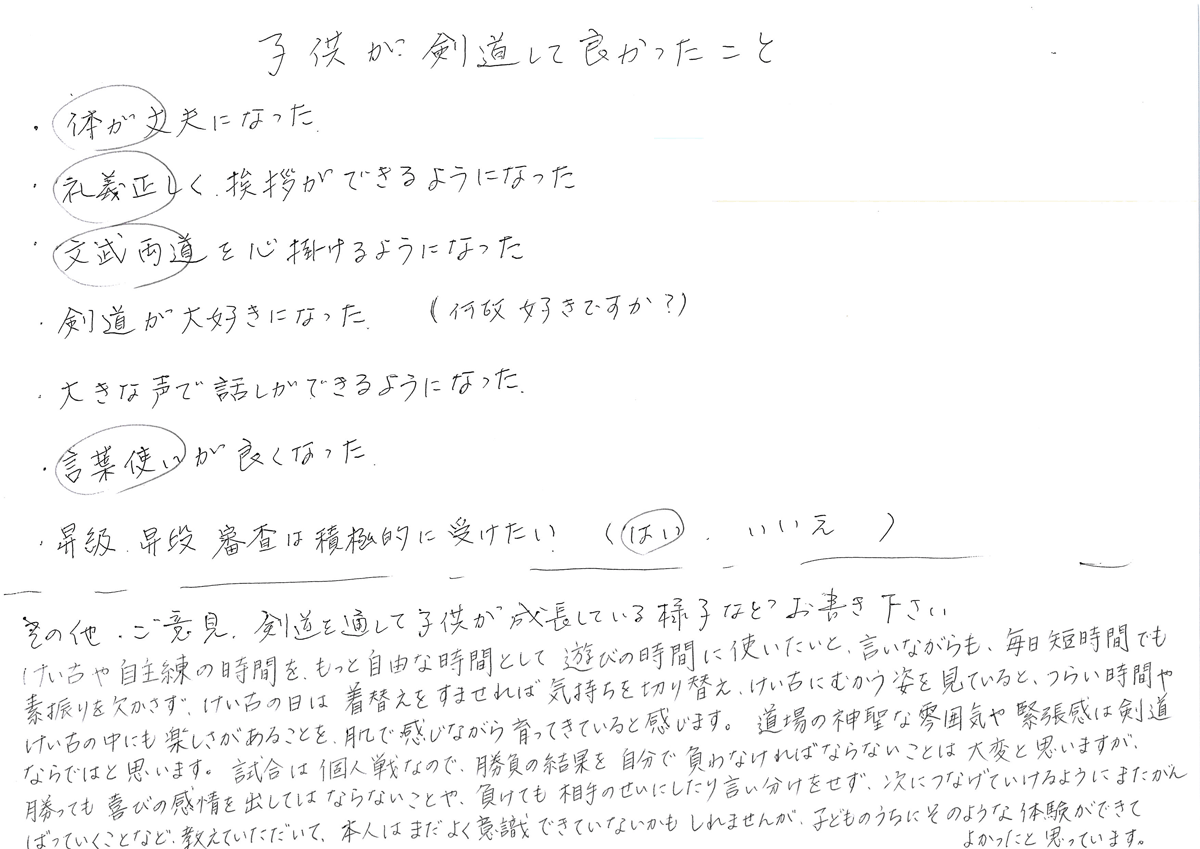 子供が剣道して良かったこと
・体が丈夫になった.
・礼義正しく、挨拶ができるようになった
・文武両道を心掛けるようになった
・剣道が大好きになった. (何故好きですか?)
・大きな声で話しができるようになった.
・言葉使いが良くなった.
・昇級、昇段審査は積極的に受けたい. (はい . いいえ)
その他、ご意見、剣道を通して子供が成長している様子などお書き下さい
けい古や自主練の時間を、もっと自由な時間として遊びの時間に使いたいと、言いながらも、毎日短時間でも
素振りを欠かさず、けい古の日は着替えをすませれば気持ちを切り替え、けい古にむかう姿を見ていると、つらい時間や
けい古の中にも楽しさがあることを、肌で感じながら育ってきていると感じます。道場の神聖な雰囲気や緊張感は剣道
ならではと思います。試合は個人戦なので、勝負の結果を自分で負わなければならないことは大変と思いますが、
勝っても喜びの感情を出してはならないことや、負けても相手のせいにしたり言い分けをせず、次につなげていけるようにまたがん
ばっていくことなど、教えていただいて、本人はまだよく意識できていないかもしれませんが、子どものうちにそのような体験ができて
よかったと思っています。